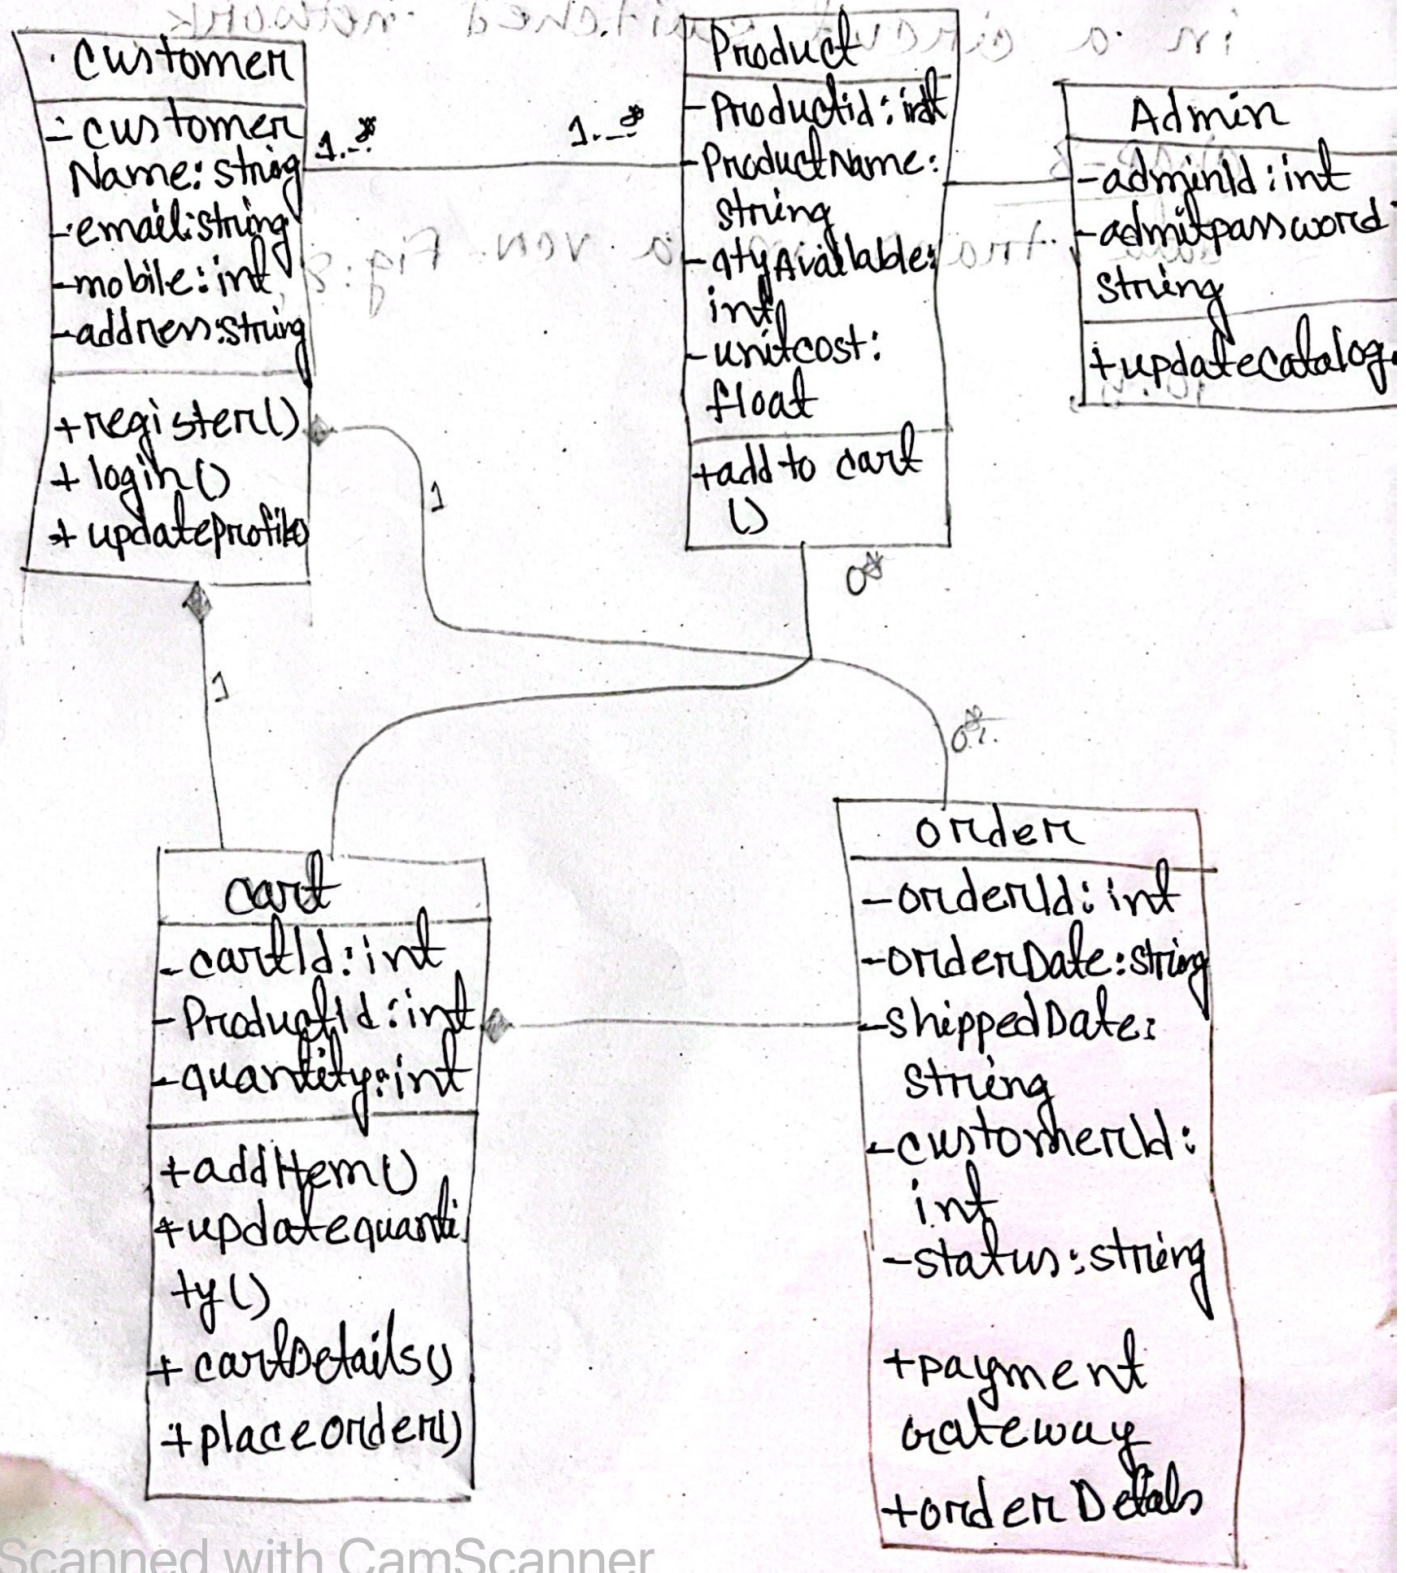 Customer
- customer
Name: string
- email: string
- mobile: int
- address: string
+ register()
+ login ()
+ updateprofile()
1..*
1..*
Product
- Productid: int
- ProductName:
string
- qtyAvailable:
int
- unitcost:
float
+ add to cart
()
Admin
- adminId: int
- admitpassword:
string
+ updatecatalog
1
1
0*
0*
cart
- cartId: int
- ProductId: int
- quantity: int
+ addItem()
+ updatequanti
ty()
+ cartDetails()
+ placeorder()
order
- orderId: int
- orderDate: string
- shippedDate:
string
- customerId:
int
- status: string
+ payment
gateway
+ order Detals
Scanned with CamScanner